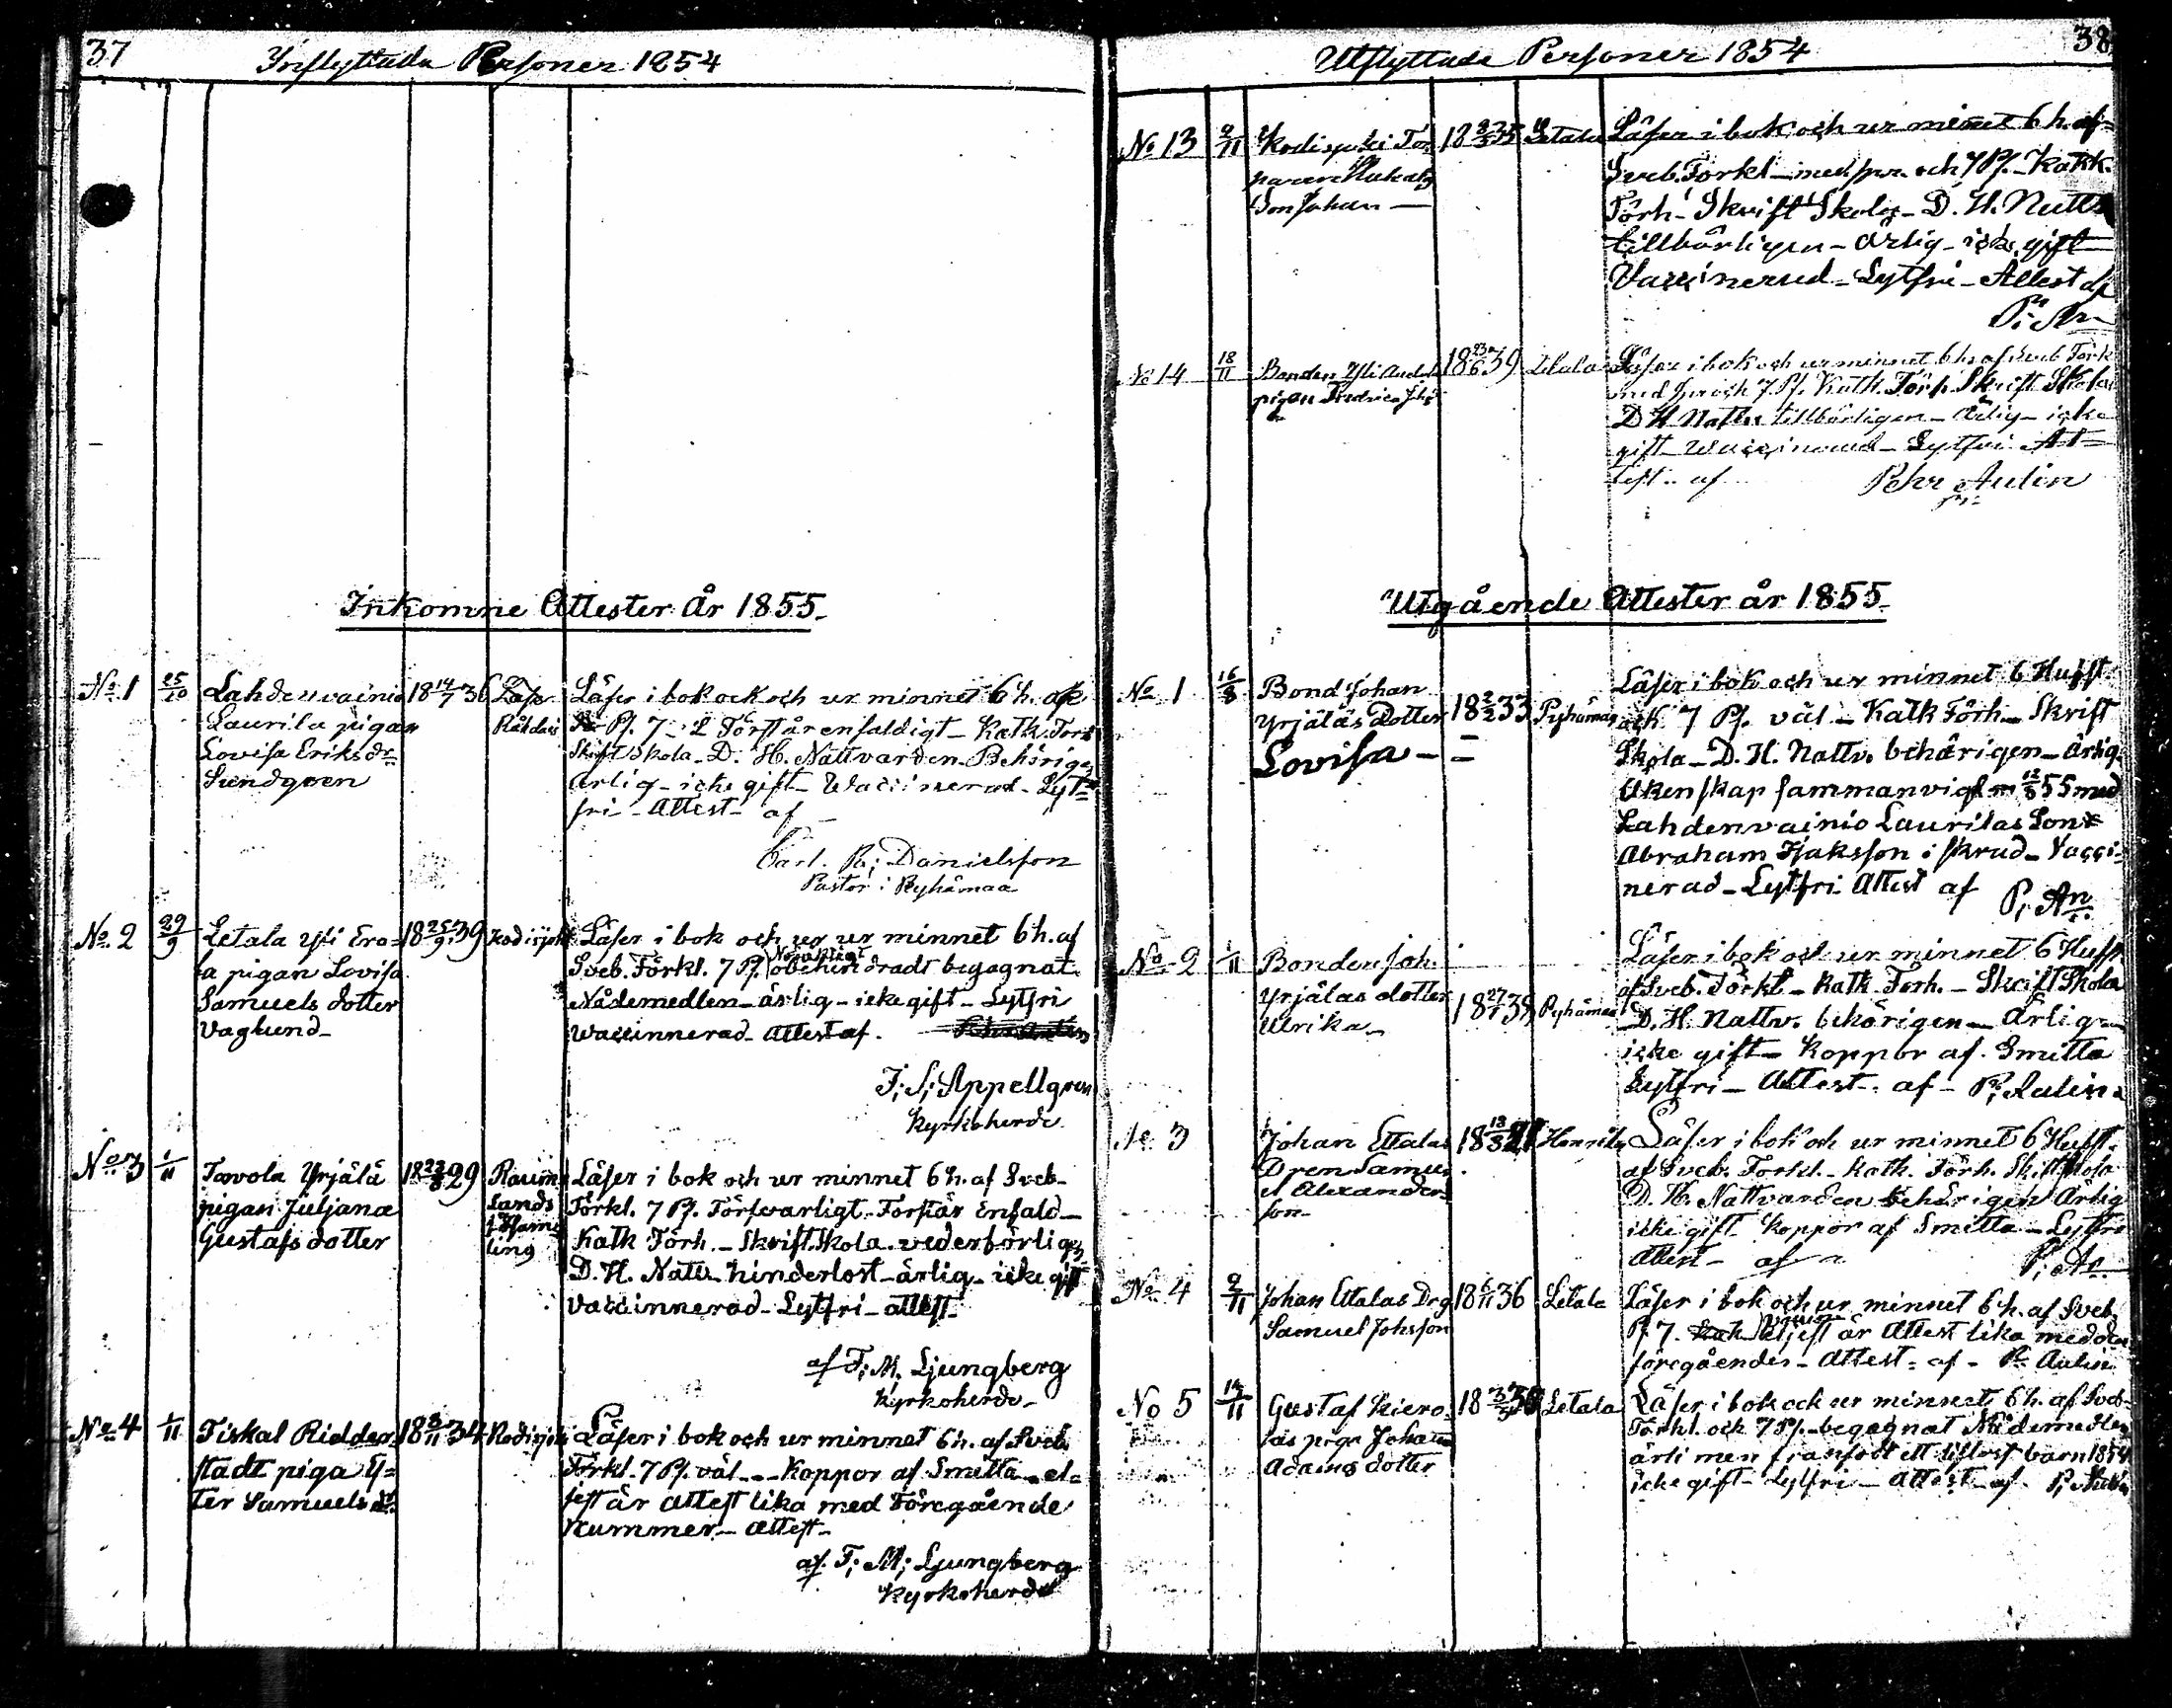 37
Inflyttade Personer 1854
Inkomne Attester År 1855.
No. 1 25/10 Lahdenvainio 18 14/7 36 Läser i bok ock och ur minnet 6 h. af
Laurila pigan Pf. 7 - Förstår enfaldigt - Kath. Förh
Lovisa Eriksdr Skrift Skola - D. H. Nattvarden Behörigen
Sundgren Ärlig - icke gift - Vaccinerad - Lyt=
fri - Attest - af
Carl. R; Danielsson
Pastor i Pyhämaa
No. 2 29/9 Letala Yli Ero= 18 25/9 39 Kodisjoki Läser i bok och ur ur minnet 6 h. af
la pigan Lovisa Sveb. Förkl. 7 Pf. obehindradt begagnat
Samuels dotter Nådemedlen - ärlig - icke gift - Lytfri
Vaglund - Vaccinnerad - Attest af.
J; S; Appellgren
Kyrkoherde.
No. 3 1/11 Tavola Yrjälä 18 23/8 29 Raumo Läser i bok och ur minnet 6 h. af Sveb-
pigan Juljana Lands Förkl. 7 Pf. Försvarligt - Förstår Enfald -
Gustafs dotter Församling Kath Förh. - Skrift. Skola. vederbörligen
D. H. Nattv. hinderlöst - ärlig - icke gift
Vaccinnerad - Lytfri - attest -
af F; M. Ljungberg
Kyrkoherde -
No. 4 1/11 Fiskal Ridder= 18 8/11 34 Kodisjoki Läser i bok och ur minnet 6 h. af Sveb
stadt piga U= Förkl. 7 Pf. väl - Koppor af Smitta - el=
ter Samuels dr. jest är attest lika med Föregående
Nummer - attest -
af. F; M; Ljungberg
Kyrkoherde
38
Utflyttade Personer 1854
No 13 9/11 Kodisjoki 18 35 Letala Läser i bok och ur minnet 6 h. af
Sveb. Förkl - med och 7 Pf. - Katk.
Son Johan - Förh - Skrift Skola - D. H. Nattv
tillbörligen - ärlig - icke gift
Vaccinerad - Lytfri - Attest af
P; An
No 14 18/11 Bonden Yli 18 23/6 39 Letala Läser i bok och ur minnet 6 h. af Sveb Förk
pigan med och 7 Pf. Kath. Förh Skrift Skola
D H Nattv. tillbörligen - ärlig - icke
gift - Vaccinerad - Lytfri At=
test - af Pehr Aulin
Utgående Attester år 1855.
No 1 16/8 Bond Johan 18 2/2 33 Pyhämaa Läser i bok och ur minnet 6 Hufst
Yrjäläs Dotter och 7 Pf. väl - Katk Förh - Skrift
Lovisa - Skola - D. H. Nattv. behörigen - ärlig
Äkenskap sammanvigd 55 med
Lahdenvainio Laurilas Son
Abraham Isaksson i skrud - Vacci=
nerad - Lytfri Attest af P; An
No 2 1/11 Bonden Joh. Läser i bok och ur minnet 6 Hufst
Yrjälas dotter 18 27/7 38 Pyhämaa af Sveb. Förkl - Kath. Förh. - Skrift Skola
Ulrika - D. H. Nattv. behörigen - ärlig -
icke gift - Koppor af. Smitta
Lytfri - Attest. af - P; Aulin
No 3 Johan Ettalas 18 Honnila Läser i bok och ur minnet 6 Hufst.
Dren Samu= af Sveb. Förkl. - Kath. Förh. Skrift Skola
el Alexander= D. H. Nattvarden behörigen Ärlig
son - icke gift - Koppor af Smitta - Lytfri
Attest - af P; An
No 4 9/11 Johan Ettalas Drg 18 6/11 36 Letala Läser i bok och ur minnet 6 h. af Sveb
Samuel Johsson Pf. 7. eljest är Attest lika med den
föregåendes - Attest - af - P. Aulin
No 5 14/11 Gustaf Kiero= Letala Läser i bok ock ur minnet 6 h. af Sveb-
las piga Johanna Förkl. och 7 Pf. - begagnat Nådemedlen
Adams dotter ärli men framfödt ett liflöst barn 1854
icke gift - Lytfri - Attest - af. P; Aulin